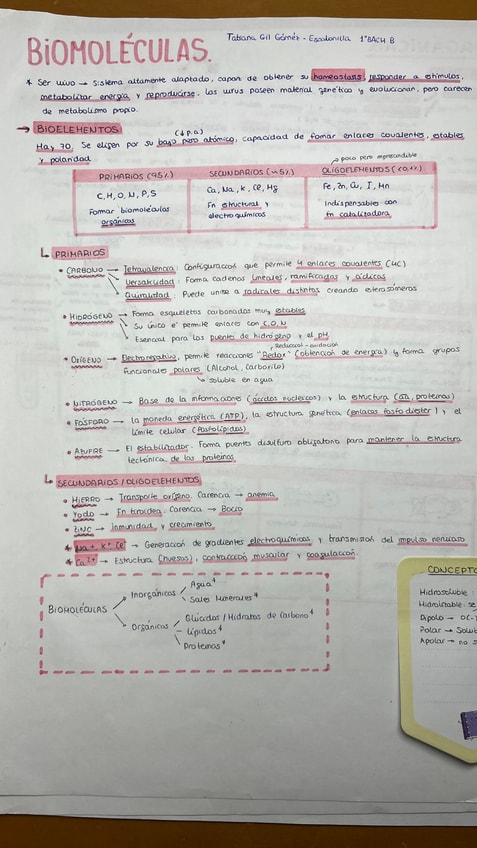 Tatiana Gil Gómez - Escalonilla 1ºBACH B
BIOMOLÉCULAS.
* Ser vivo → Sistema altamente adaptado, capaz de obtener su homeostasis, responder a estímulos,
metabolizar energía y reproducirse. Los virus poseen material genético y evolucionan, pero carecen
de metabolismo propio.
→ BIOELEMENTOS
(↓p.a)
Hay 70. Se eligen por su bajo peso atómico, capacidad de fomar enlaces covalentes, estables
y polaridad
poco pero imprescindible
PRIMARIOS (95%) SECUNDARIOS (~5%) OLIGOELEMENTOS (<0,1%)
C, H, O, N, P, S Ca, Na, K, Cl, Mg Fe, Zn, Cu, I, Mn
Formar biomoléculas orgánicas Fn estructural y electroquímicas Indispensables con fn catalizadora
PRIMARIOS
• CARBONO → Tetravalencia: Configuración que permite 4 enlaces covalentes (4C)
Versatilidad: Forma cadenas lineales, ramificadas y cíclicas
Quiralidad: Puede unirse a radicales distintos creando esterasómeros
• HIDRÓGENO → Forma esqueletos carbonados muy estables
Su único e⁻ permite enlaces con C, O, N
Esencial para los puentes de hidrógeno y el pH
Reducción-oxidación
• OXÍGENO → Electronegativo, permite reacciones "Redox" (obtención de energía) y forma grupos
funcionales polares (Alcohol, Carbonilo)
soluble en agua
• NITRÓGENO → Base de la información (ácidos nucleicos) y la estructura (aa, proteínas)
• FÓSFORO → La moneda energética (ATP), la estructura genética (enlaces fosfodiéster) y el
límite celular (fosfolípidos)
• AZUFRE → El estabilizador. Forma puentes disulfuro obligatorio para mantener la estructura
tectónica de las proteínas.
SECUNDARIOS/OLIGOELEMENTOS
• HIERRO → Transporte oxígeno. Carencia → anemia
• YODO → Fn tiroidea. Carencia → Bocio
• ZINC → Inmunidad y crecimiento
* Na+ K+ Cl⁻ → Generación de gradientes electroquímicos y transmisión del impulso nervioso
* Ca²⁺ → Estructura (huesos), contracción muscular y coagulación.
BIOMOLÉCULAS
Inorgánicas
Agua*
Sales Minerales*
Orgánicas
Glúcidos/Hidratos de Carbono*
Lípidos*
Proteínas*
CONCEPTO
Hidrosoluble:
Hidrolizable: se
Dipolo → δ(-
Polar → Solub
Apolar → no s